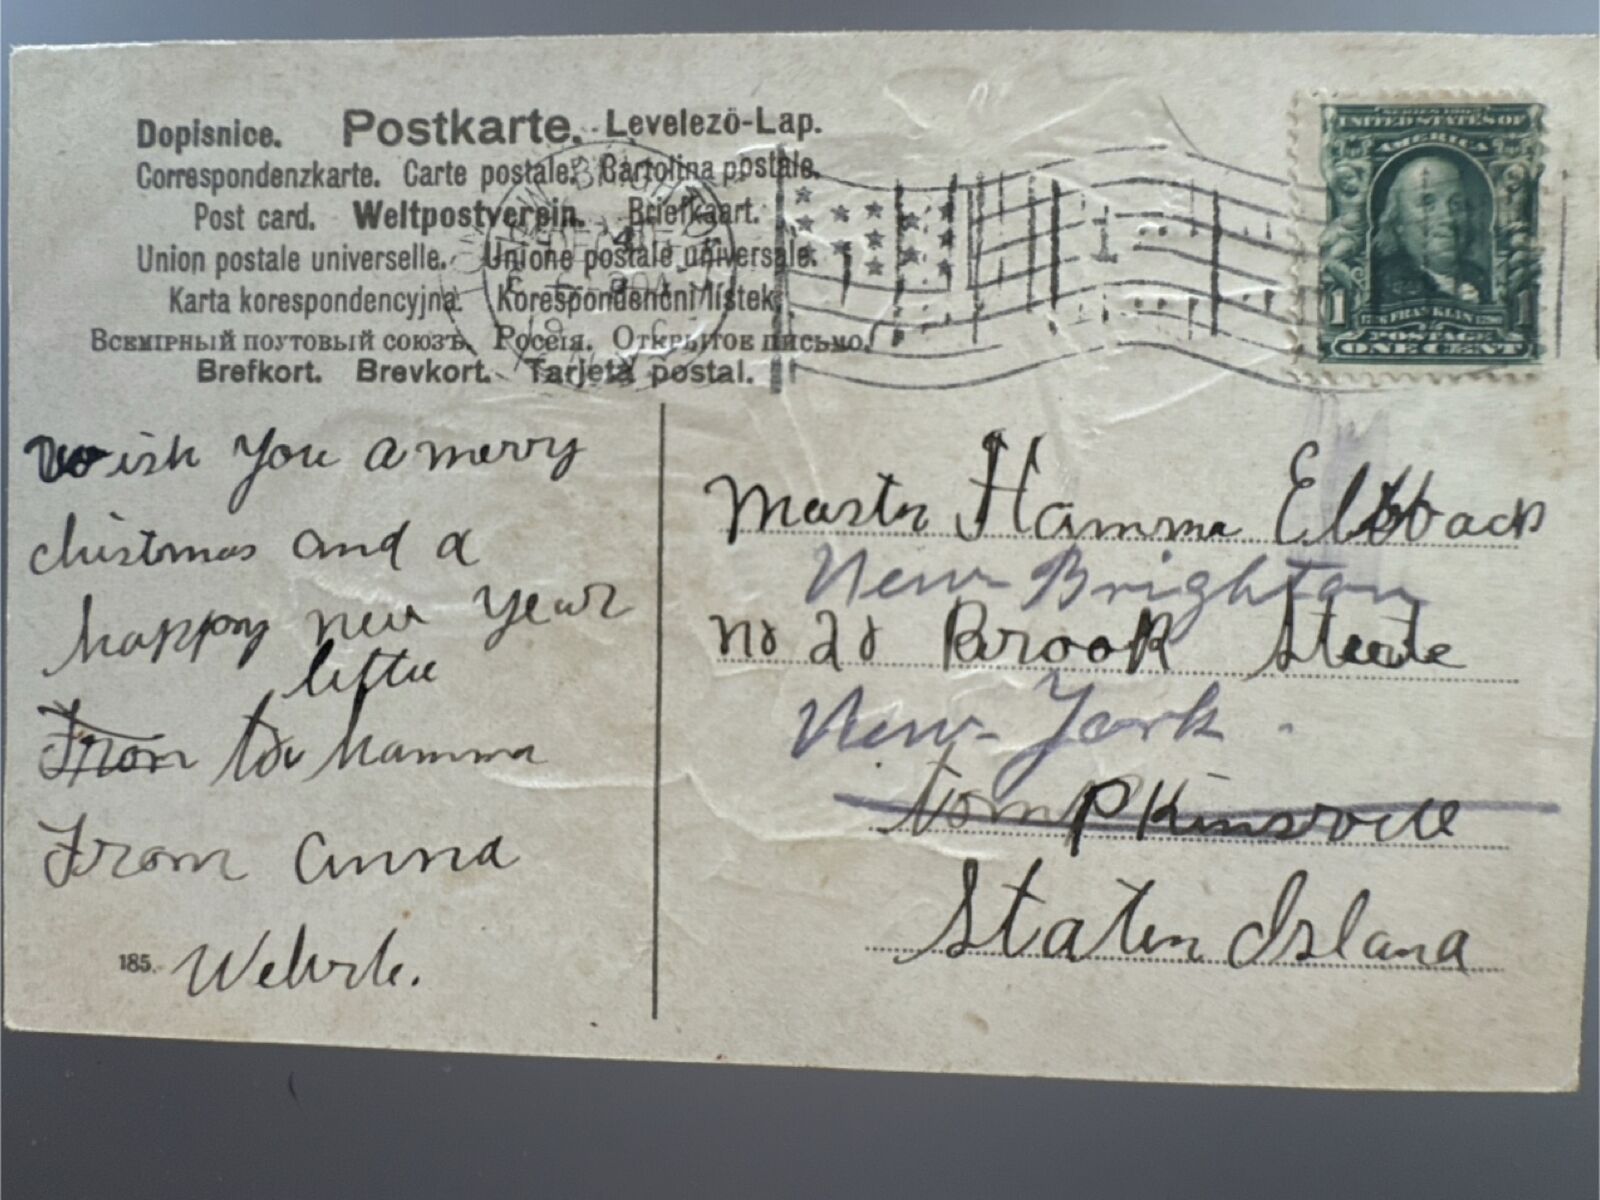 Dopisnice. Postkarte. Levelezö-Lap.
Correspondenzkarte. Carte postale. Cartolina postale.
Post card. Weltpostverein. Briefkaart.
Union postale universelle. Unione postale universale.
Karta korespondencyjna. Korespondenční lístek.
Всемірный поутовый союзъ. Россія. Открытое письмо.
Brefkort. Brevkort. Tarjeta postal.
SERIES 1902
UNITED STATES OF
AMERICA
1 FRANKLIN 1
POSTAGE
ONE CENT
wish you a merry
christmas and a
happy new year
little
From to Hamma
From Anna
185. Wehrle.
Master Hamma
New Brighton
Brook Streete
New York.
tompkinsville
Staten Island